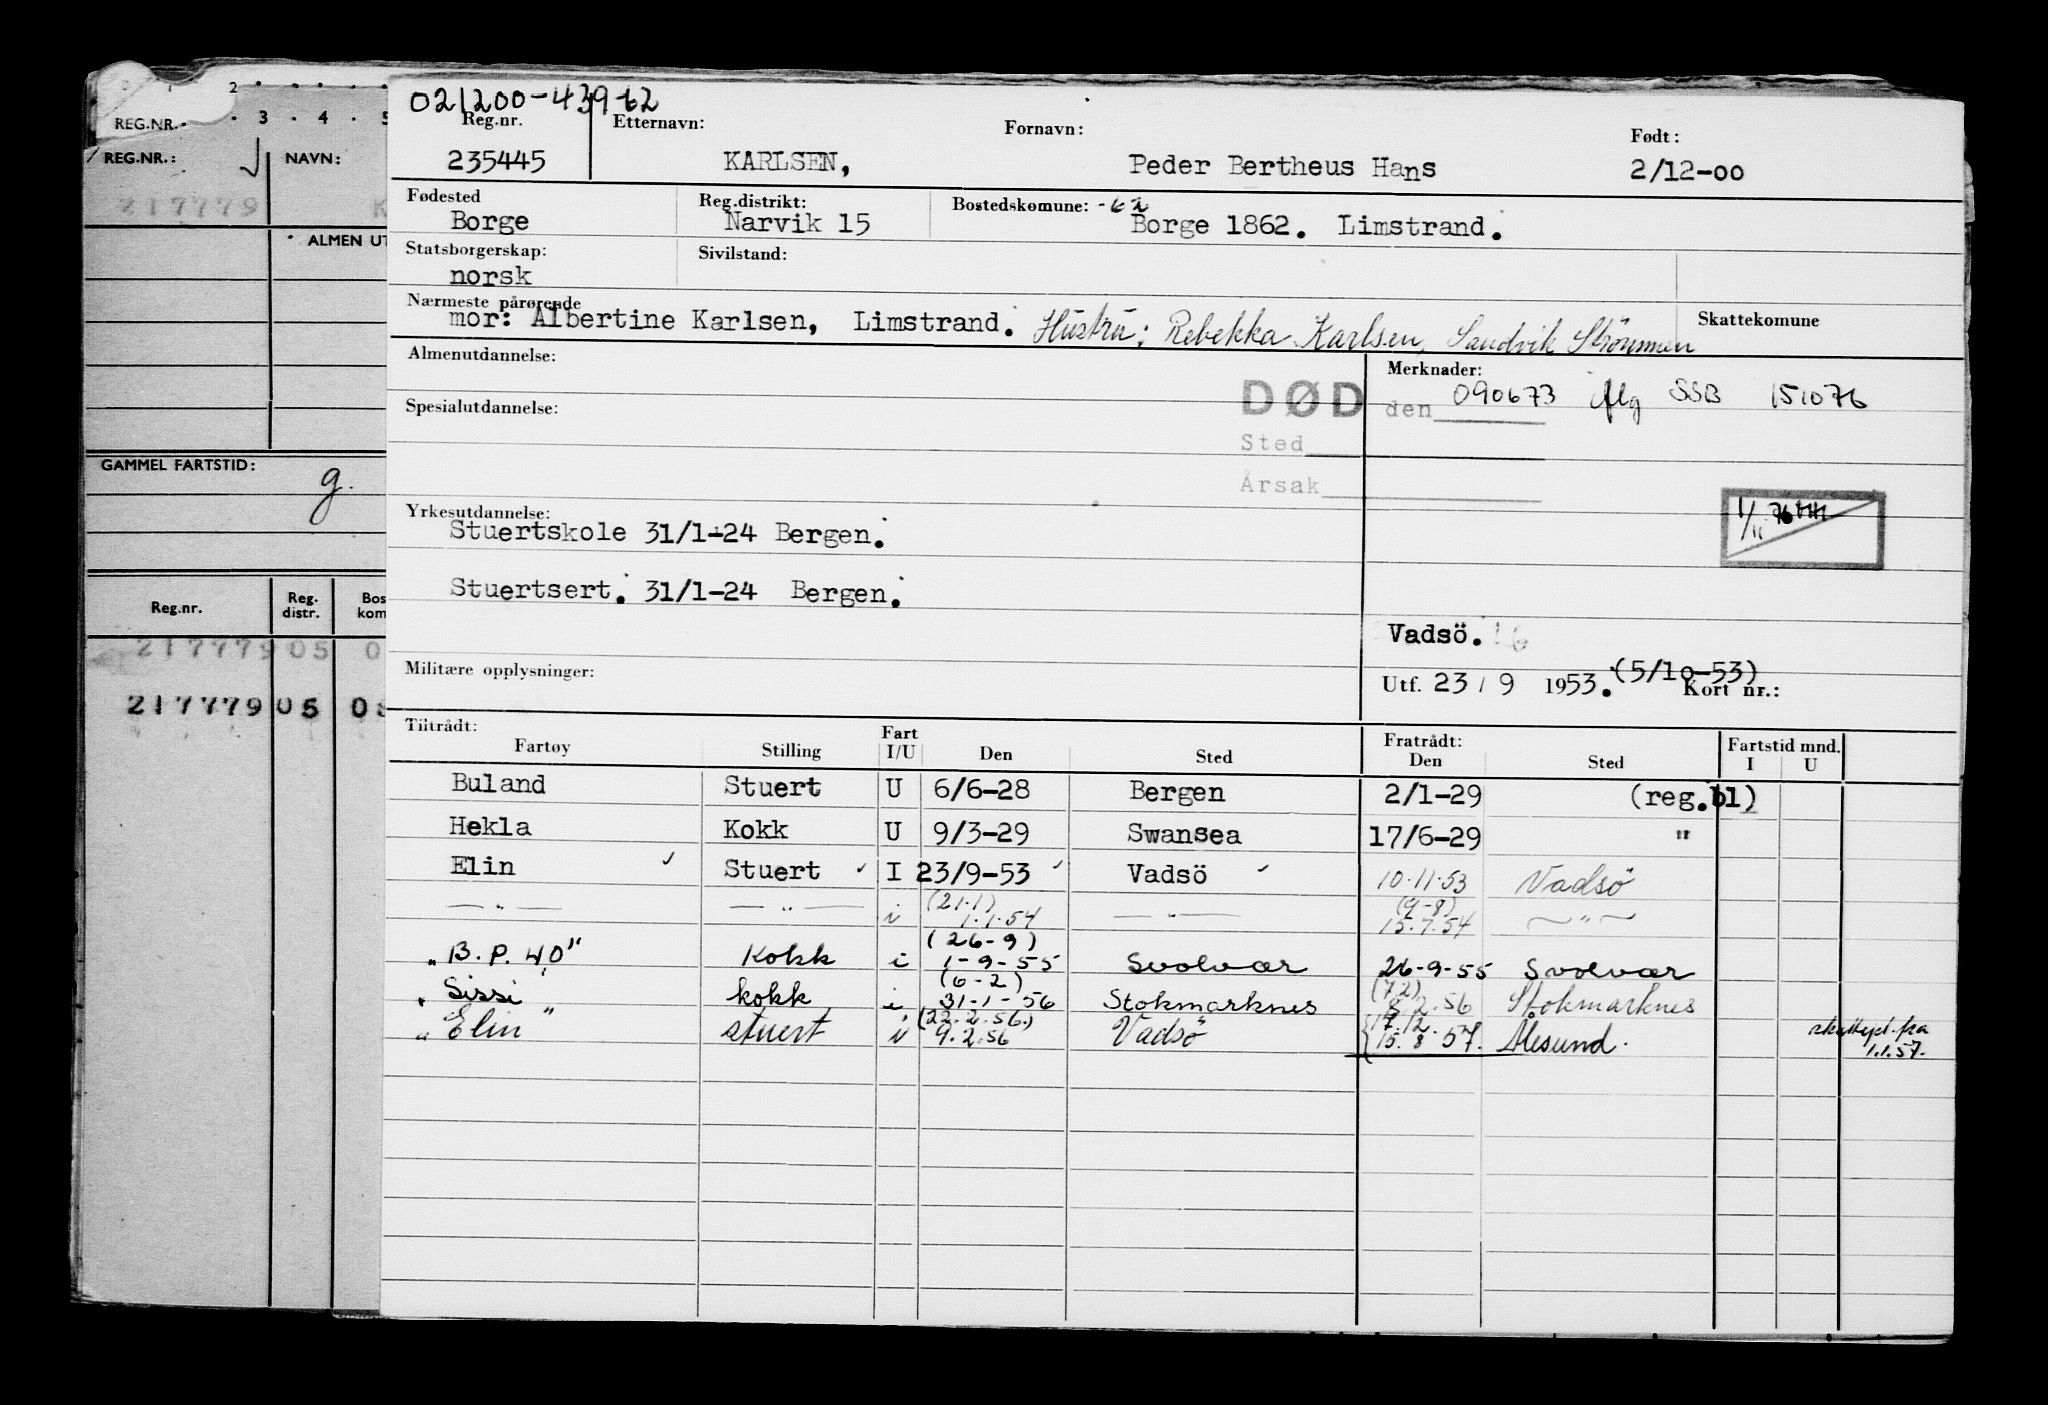 2
3 . 4 . 5
REG.NR.
REG.NR.: NAVN:
217779 K
ALMEN UT
GAMMEL FARTSTID:
g.
Reg.nr. Reg. distr. Bos kom
217779 05 0
217779 05 08
021200-439-62
Reg.nr. Etternavn: Fornavn: Født:
235445 KARLSEN, Peder Bertheus Hans 2/12-00
Fødested Reg.distrikt: Bostedskomune: -62
Borge Narvik 15 Borge 1862. Limstrand.
Statsborgerskap: Sivilstand:
norsk
Nærmeste pårørende Skattekomune
mor: Albertine Karlsen, Limstrand. Hustru: Rebekka Karlsen, Sandvik Strömmen
Almenutdannelse: Merknader:
DØD den 090673 iflg SSB 151076
Spesialutdannelse:
Sted
Årsak
Yrkesutdannelse:
Stuertskole 31/1-24 Bergen.
1/11
Stuertsert. 31/1-24 Bergen.
Vadsö. 16
Militære opplysninger:
Utf. 23 / 9 1953. (5/10-53) Kort nr.:
Tiltrådt: Fart Fratrådt: Fartstid mnd.
Fartøy Stilling I/U Den Sted Den Sted I U
Buland Stuert U 6/6-28 Bergen 2/1-29 (reg.bl)
Hekla Kokk U 9/3-29 Swansea 17/6-29 "
Elin Stuert I 23/9-53 Vadsö 10.11.53 Vadsö
(21.1) (9-8)
— " — — " — i 1.1.54 — " — 15.7.54 — " —
(26-9)
„B.P. 40" Kokk i 1-9-55 Svolvær 26-9-55 Svolvær
(6-2) (7.2)
„Sissi" kokk i 31-1-56 Stokmarknes 8.2.56 Stokmarknes
(22.2.56.) 17.12.
„Elin" stuert i 9.2.56 Vadsö 15.8.57. Ålesund. skattepl. fra
1.1.57.